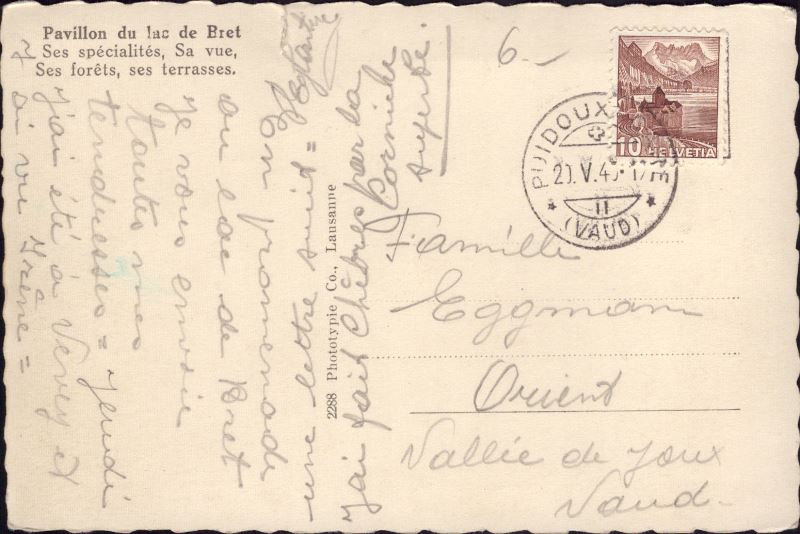 Pavillon du lac de Bret
Ses spécialités, Sa vue,
Ses forêts, ses terrasses.
6.-
10 HELVETIA
PUIDOUX
20.V.4
11
(VAUD)
En promenade
au lac de Bret
je vous envoie
toutes mes
tendresses = Jeudi
j'ai été à Vevey et
j'ai vu Irène =
une lettre suit =
j'ai fait Chèbres par la
Corniche
superbe.
2288 Phototypie Co., Lausanne
Famille
Eggmann
Orient
Vallée de Joux
Vaud.